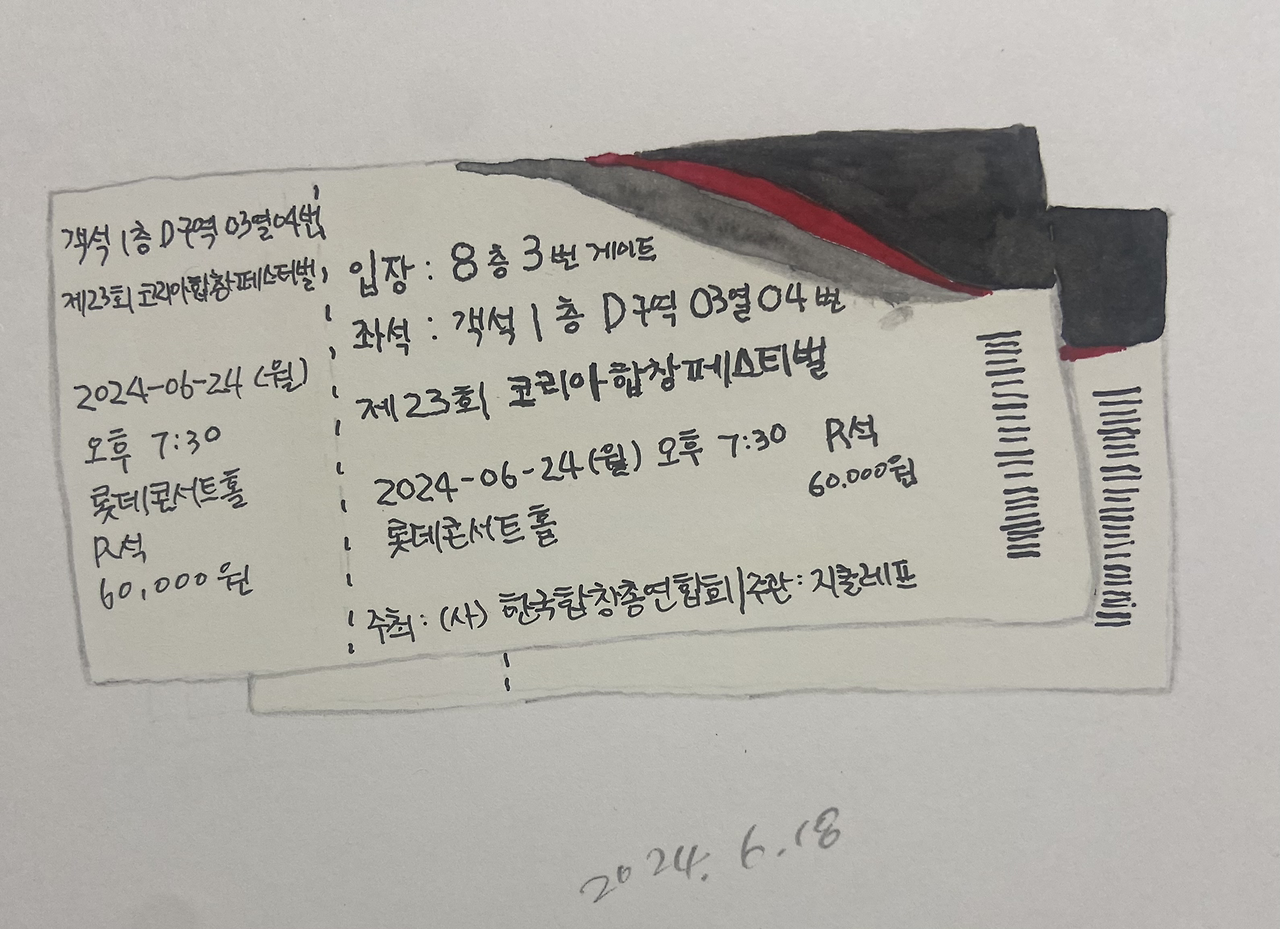 객석 1층 D구역 03열04번
제23회 코리아합창페스티벌
2024-06-24 (월)
오후 7:30
롯데콘서트홀
R석
60,000원
입장 : 8층 3번 게이트
좌석 : 객석 1층 D구역 03열 04번
제23회 코리아합창페스티벌
2024-06-24(월) 오후 7:30 R석
60.000원
롯데콘서트홀
주최 : (사) 한국합창총연합회/주관 : 지클레프
2024. 6. 18